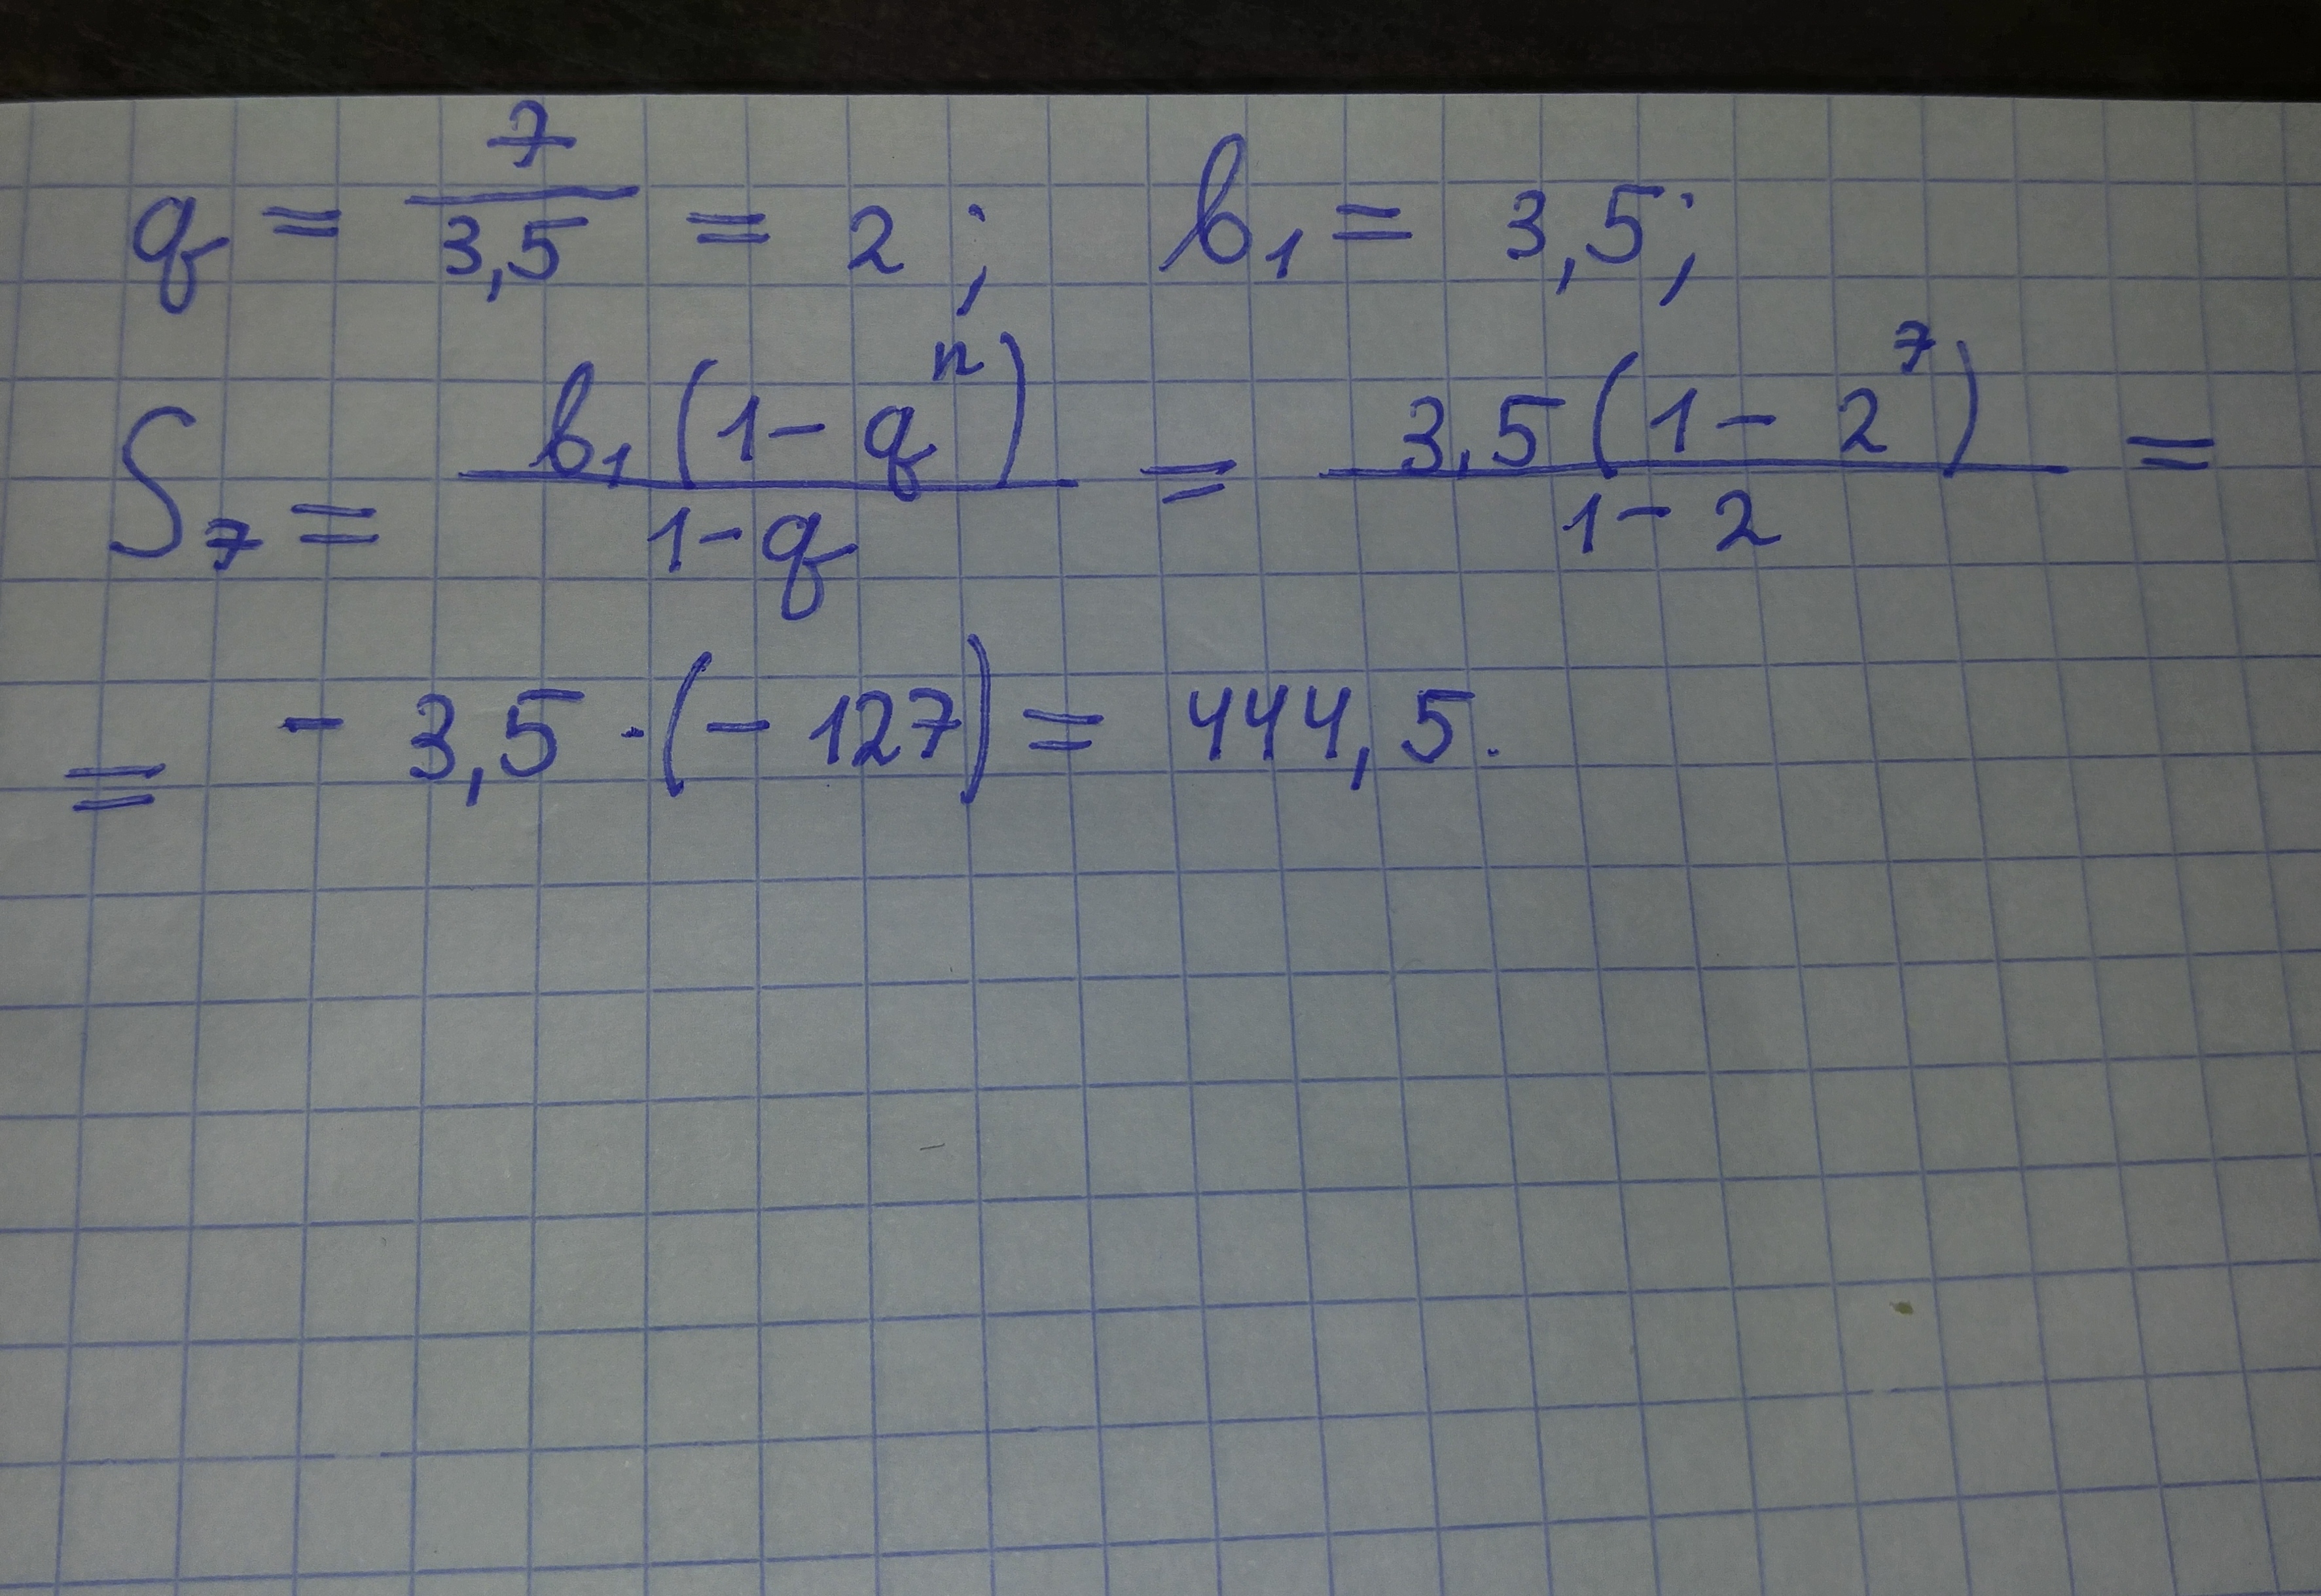 q = 7/3,5 = 2; b₁ = 3,5;
S₇ = b₁(1-qⁿ)/1-q = 3,5(1-2⁷)/1-2 =
= - 3,5 · (- 127) = 444,5.